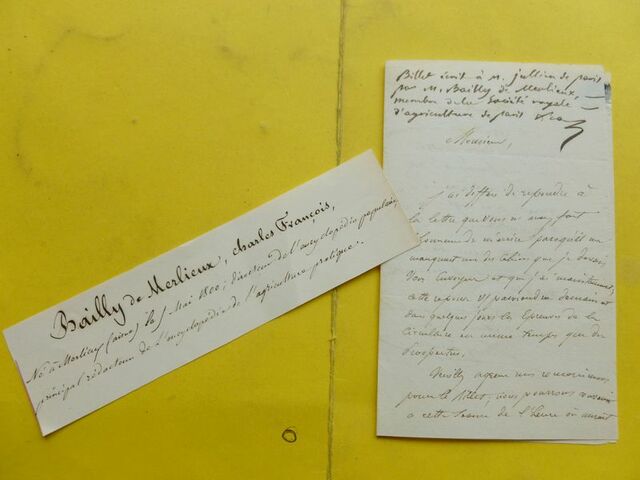 Bailly de Merlieux, charles François,
Né à Merlieux (aisne) le 1 Mai 1800; directeur de l'encyclopédie populaire,
principal rédacteur de l'encyclopédie de l'agriculture pratique.
Billet écrit à M. jullien de paris
par M. Bailly de Merlieux,
membre de la Société royale
d'agriculture de paris
Monsieur,
j'ai différé de répondre à
la lettre que vous m'avez fait
l'honneur de m'écrire parcequ'il en
manquait un des cahiers que je devais
vous envoyer et que j'ai maintenant,
cette épreuve vs parviendra demain et
dans quelques jours la Epreuve de la
Circulaire en même temps que du
Prospectus.
Veuillez agréer mes remerciemens
pour le billet, nous pourrons
a cette de l'heure où